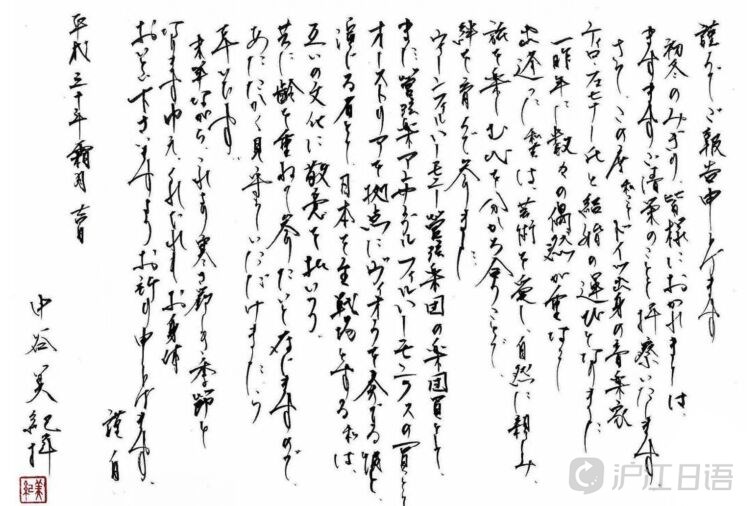 謹んでご報告申し上げます
初冬のみぎり、皆様におかれましては、
ますますご清栄のことと拝察いたします。
さて、この度私ことドイツ出身の音楽家
ティロ・フェヒナー氏と結婚の運びとなりました
一昨年に数々の偶然が重なり
出逢った は、芸術を愛し、自然に親しみ、
旅を楽しむ心を分かち合うことで、
絆を育んで参りました。
ウィーンフィルハーモニー管弦楽団の楽団員として、
また管弦楽アンサンブルフィルハーモニクスの一員として
オーストリアを拠点にヴィオラを奏でる彼と、
演じる者として日本を主戦場とする私は、
互いの文化に敬意を払いつつ、
共に齢を重ねて参りたいと存じますので
あたたかく見守っていただけましたら
幸いです。
末筆ながらこれより寒さ募る季節と
なりますゆえ、くれぐれもお身体
おいとい下さいますようお祈り申し上げます。
謹白
平成三十年霜月吉日
中谷美紀拝
美紀
沪江日语